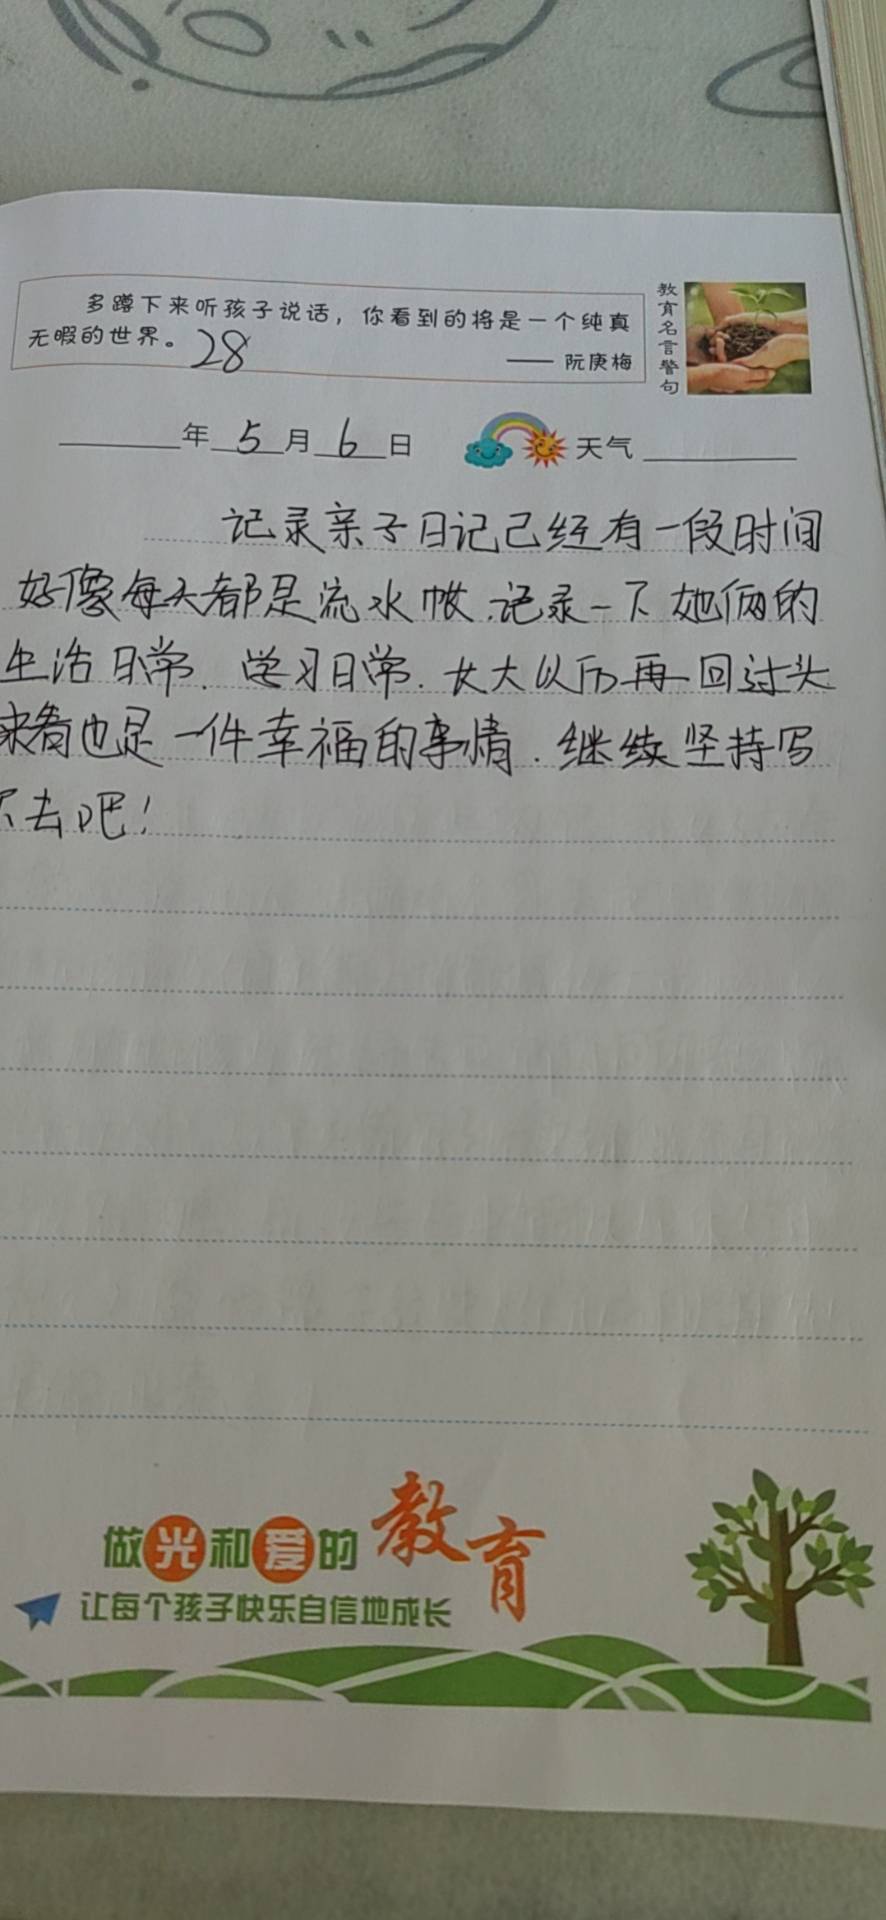 多蹲下来听孩子说话，你看到的将是一个纯真
无暇的世界。 28
—— 阮庚梅
教育名言警句
年 5 月 6 日 天气
记录亲子日记已经有一段时间
好像每天都是流水帐.记录一下她俩的
生活日常.学习日常.长大以后再回过头
来看也是一件幸福的事情.继续坚持写
下去吧！
做光和爱的教育
让每个孩子快乐自信地成长